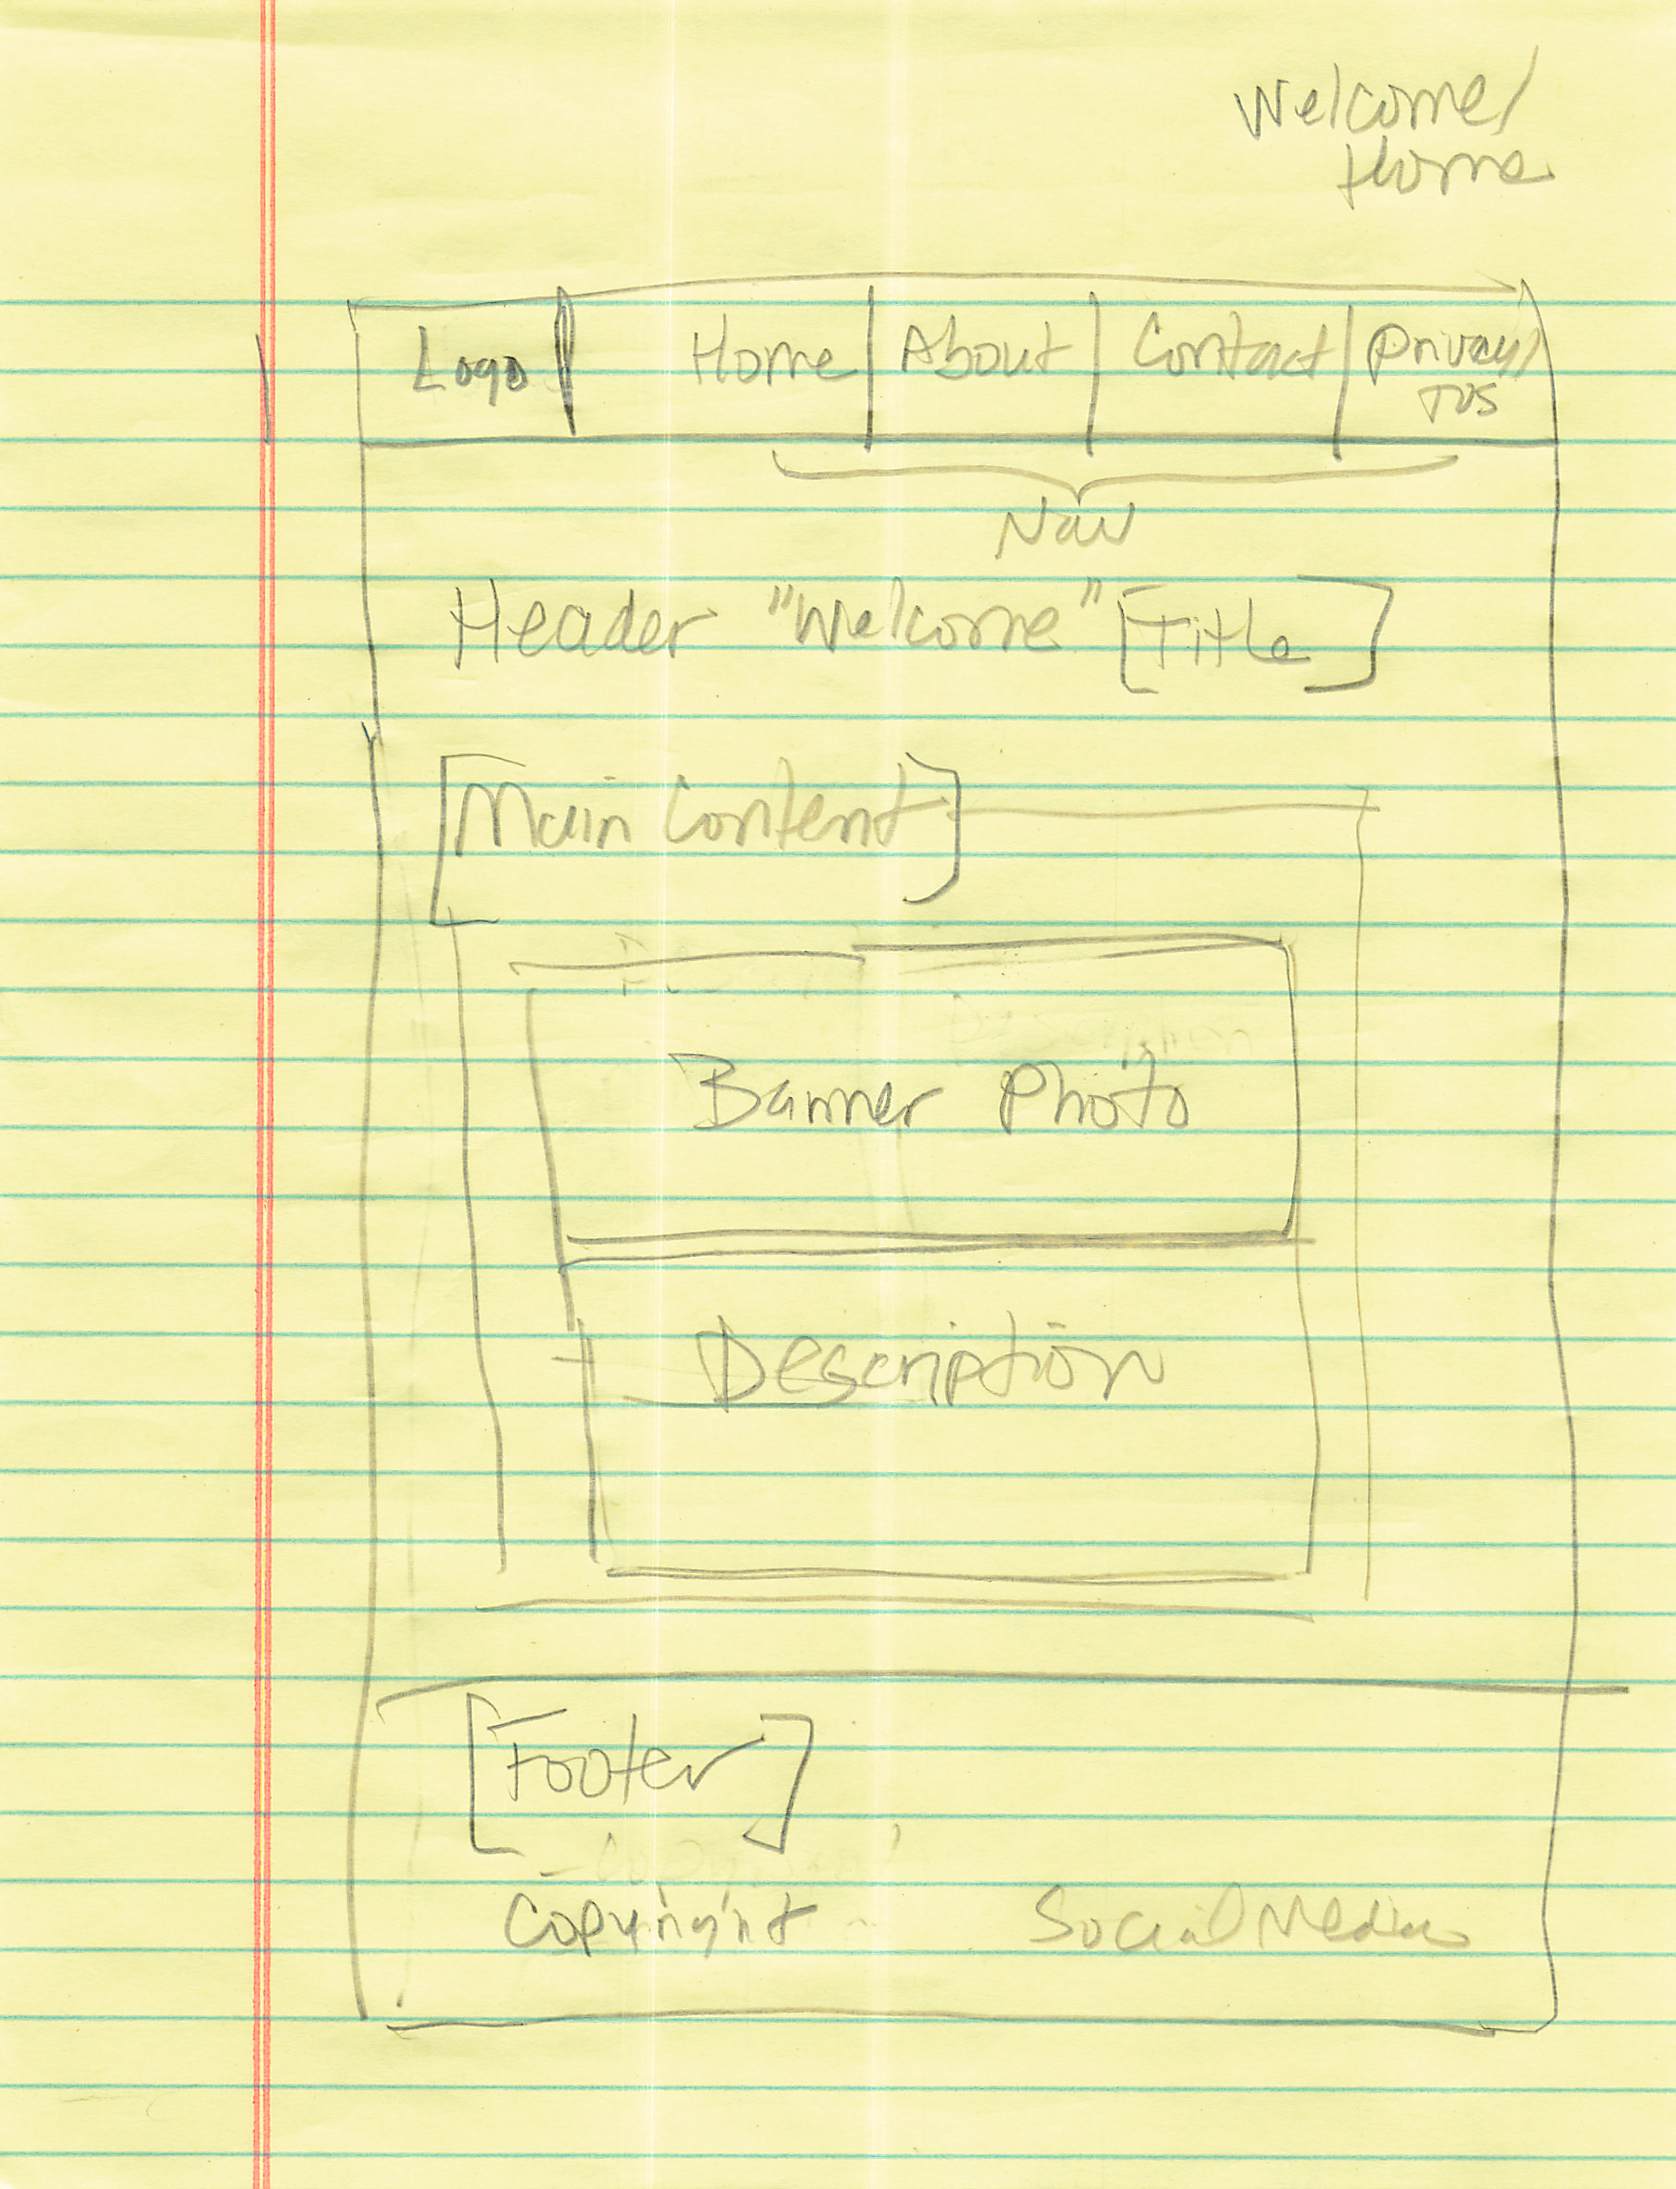 Welcome/
Home
Logo Home About Contact Privacy/
TOS
Nav
Header "Welcome" [Title]
[Main Content]
Banner Photo
Description
[Footer]
Copyright Social Media